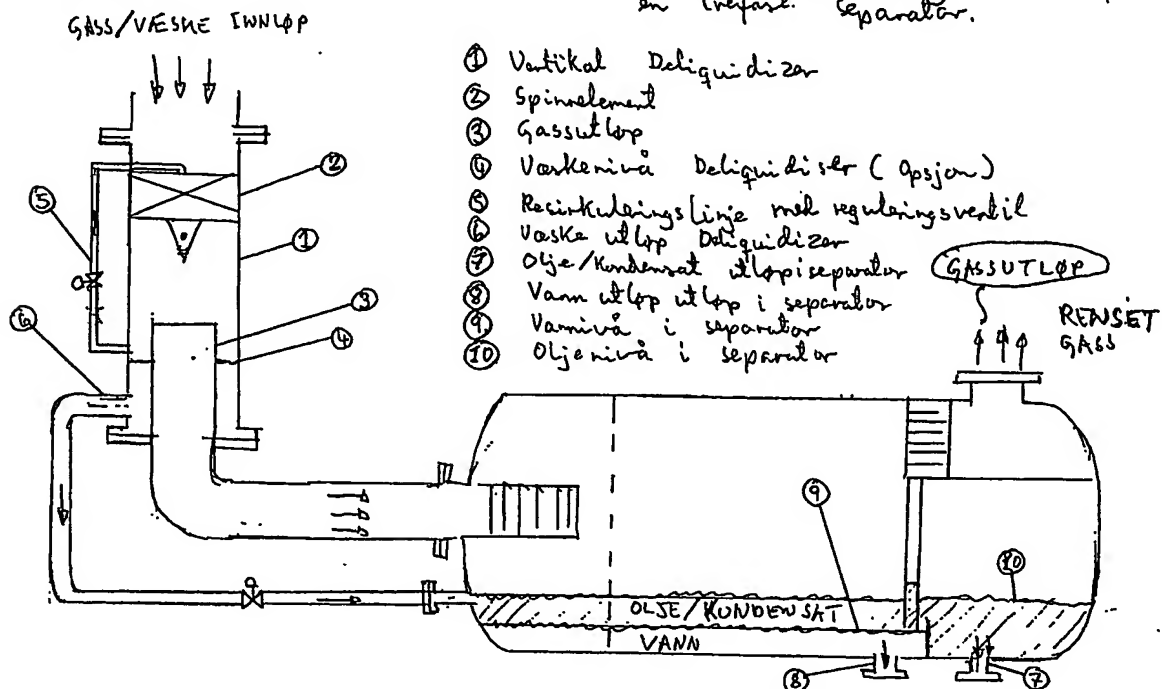 en trefase separator.
GASS/VÆSKE INNLØP
① Vertikal Deliquidizer
② Spinnelement
③ Gassutløp
④ Væskenivå Deliquidiser (Opsjon)
⑤ Resirkuleringslinje med reguleringsventil
⑥ Væske utløp Deliquidizer
⑦ Olje/Kondensat utløp i separator
⑧ Vann utløp utløp i separator
⑨ Vannivå i separator
⑩ Oljenivå i separator
GASSUTLØP
RENSET
GASS
②
⑤
①
③
④
⑥
⑨
⑩
OLJE/KUNDENSAT
VANN
⑧
⑦